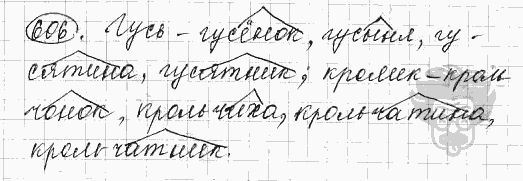 606. Гусь – гусёнок, гусыня, гу-
сятина, гусятник; кролик – кроль
чонок, крольчиха, крольчатина,
крольчатник.